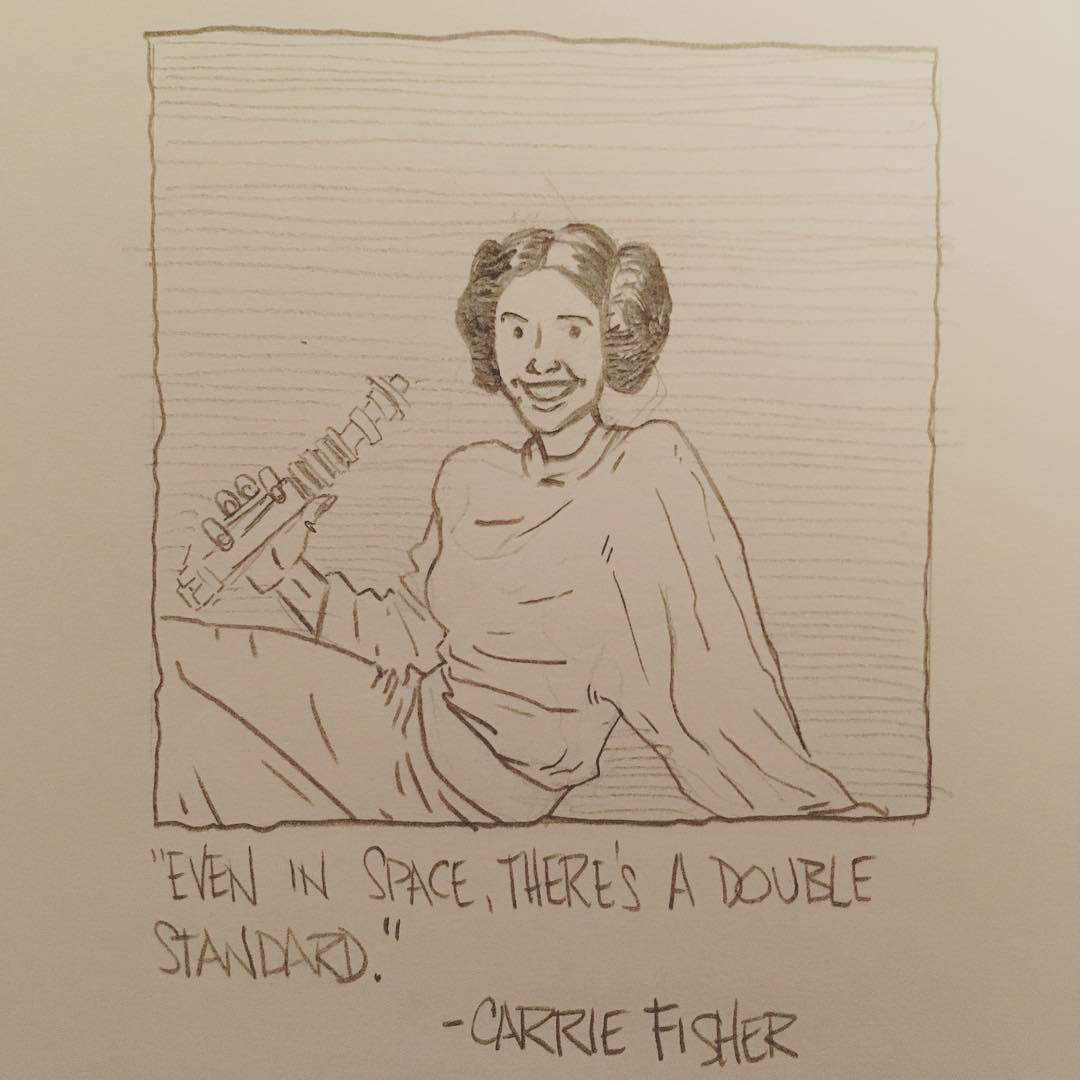 "EVEN IN SPACE, THERE'S A DOUBLE
STANDARD."
-CARRIE FISHER